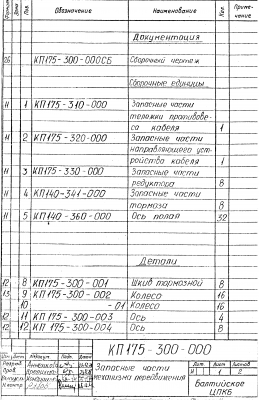 Формат Зона Поз. Обозначение Наименование Кол. Приме-
чание
Документация
КП175-300-000СБ Сборочный чертеж
Сборочные единицы
11 1 КП175-310-000 Запасные части
тележки противове-
са кабеля 1
11 2 КП175-320-000 Запасные части
направляющего уст-
ройства кабеля 1
11 3 КП175-330-000 Запасные части
редуктора 8
11 4 КП140-341-000 Запасные части
тормоза 8
11 5 КП140-360-000 Ось полая 32
Детали
12 8 КП175-300-001 Шкив тормозной 8
13 9 КП175-300-002 Колесо 16
10 -01 Колесо 16
12 11 КП175-300-003 Ось 4
12 12 КП175-300-004 Ось 8
КП175-300-000
Подп. Дата
Разраб.
Пров.
Н.контр.
Запасные части
механизма передвижения
Лит. Лист Листов
И 1 2
Балтийское
ЦПКБ